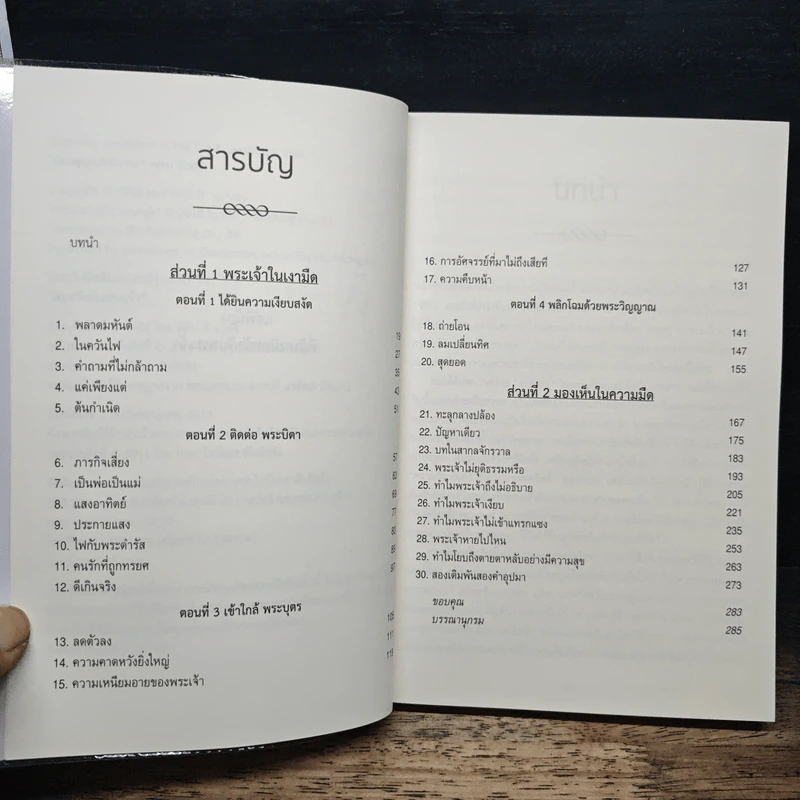 สารบัญ
บทนำ
ส่วนที่ 1 พระเจ้าในเงามืด
ตอนที่ 1 ได้ยินความเงียบสงัด
1. พลาดมหันต์ 19
2. ในควันไฟ 27
3. คำถามที่ไม่กล้าถาม 35
4. แค่เพียงแต่ 43
5. ต้นกำเนิด 51
ตอนที่ 2 ติดต่อ พระบิดา
6. ภารกิจเสี่ยง 57
7. เป็นพ่อเป็นแม่
8. แสงอาทิตย์ 69
9. ประกายแสง 77
10. ไฟกับพระดำรัส
11. คนรักที่ถูกทรยศ
12. ดีเกินจริง 97
ตอนที่ 3 เข้าใกล้ พระบุตร
13. ลดตัวลง 105
14. ความคาดหวังยิ่งใหญ่ 111
15. ความเหนียมอายของพระเจ้า 119
16. การอัศจรรย์ที่มาไม่ถึงเสียที 127
17. ความคืบหน้า 131
ตอนที่ 4 พลิกโฉมด้วยพระวิญญาณ
18. ถ่ายโอน 141
19. ลมเปลี่ยนทิศ 147
20. สุดยอด 155
ส่วนที่ 2 มองเห็นในความมืด
21. ทะลุกลางปล้อง 167
22. ปัญหาเดียว 175
23. บทในสากลจักรวาล 183
24. พระเจ้าไม่ยุติธรรมหรือ 193
25. ทำไมพระเจ้าถึงไม่อธิบาย 205
26. ทำไมพระเจ้าเงียบ 221
27. ทำไมพระเจ้าไม่เข้าแทรกแซง 235
28. พระเจ้าหายไปไหน 253
29. ทำไมโยบถึงตายตาหลับอย่างมีความสุข 263
30. สองเดิมพันสองคำอุปมา 273
ขอบคุณ 283
บรรณานุกรม 285